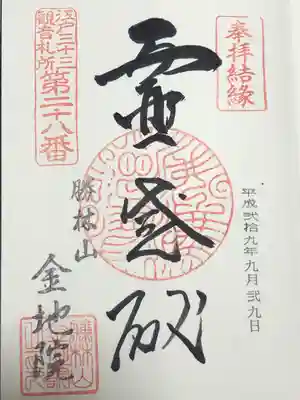 奉拝結縁
平成貳拾九年九月貳九日
靈感殿
江戸三十三
観音札所
第二十八番
勝林山
金地院